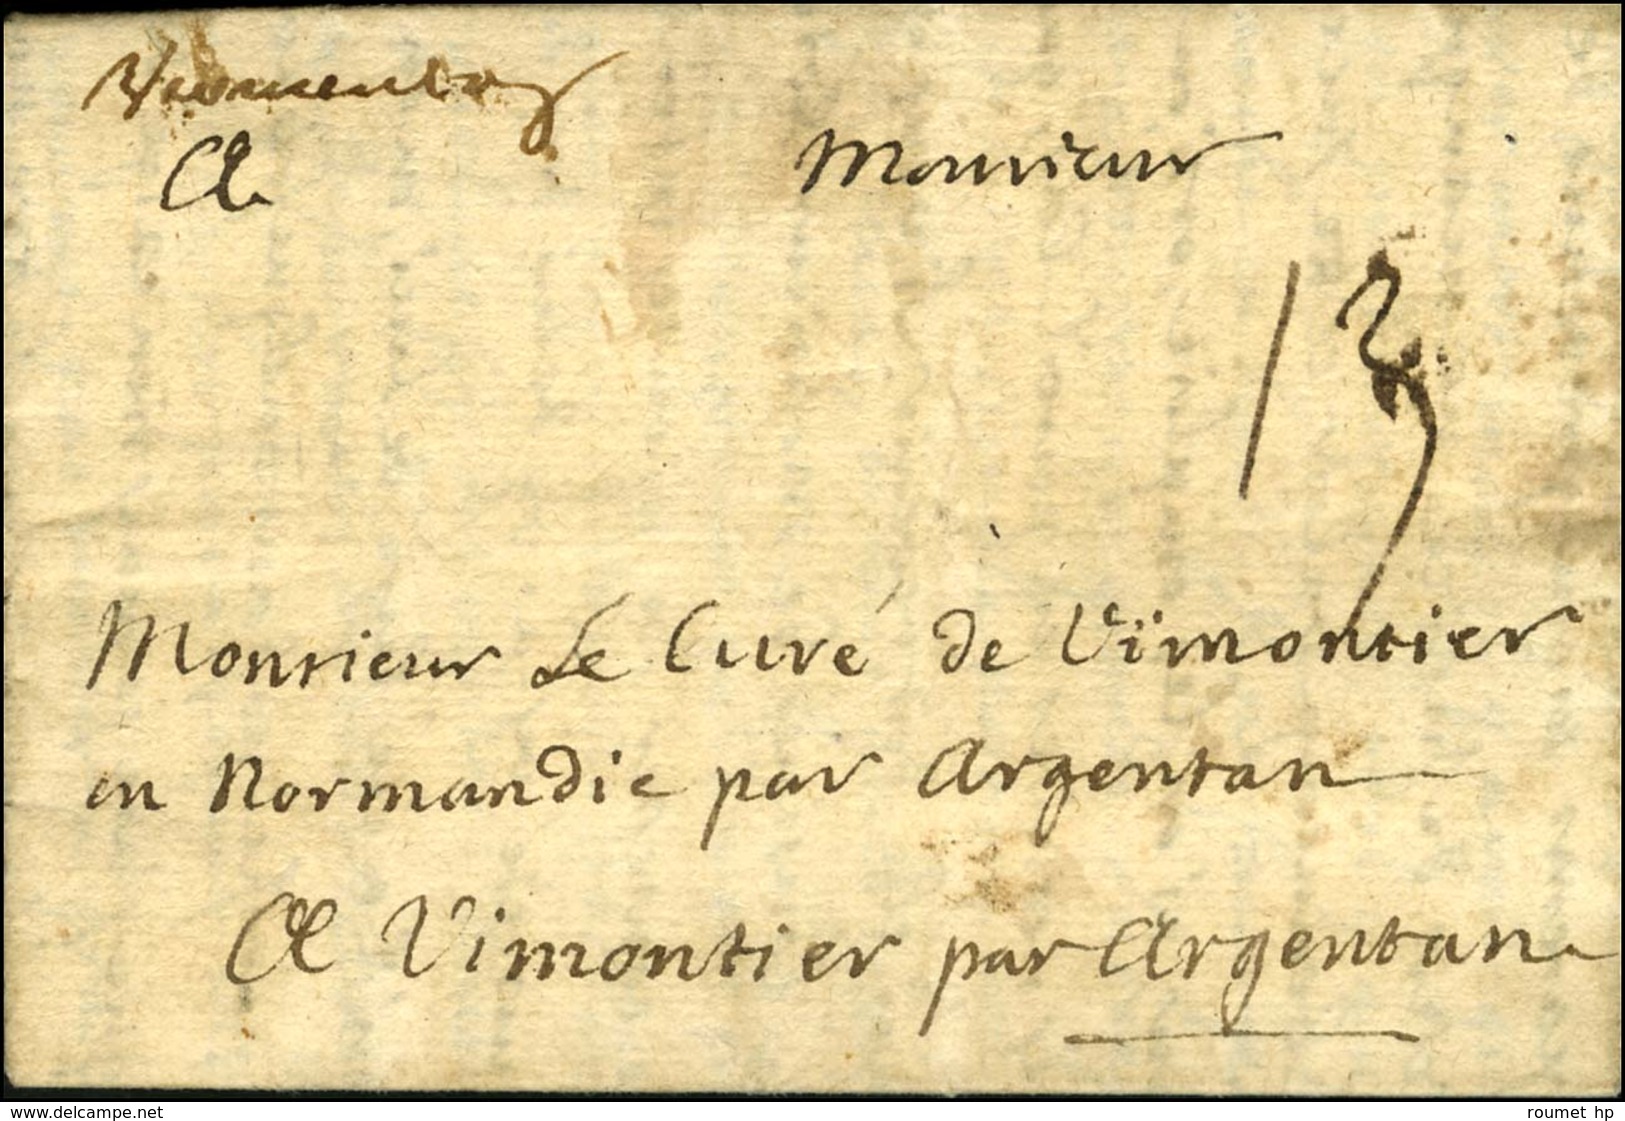 A Monsieur
13
Monsieur Le Curé de Vimontier
en Normandie par Argentan
A Vimontier par Argentan
www.delcampe.net
roumet hp